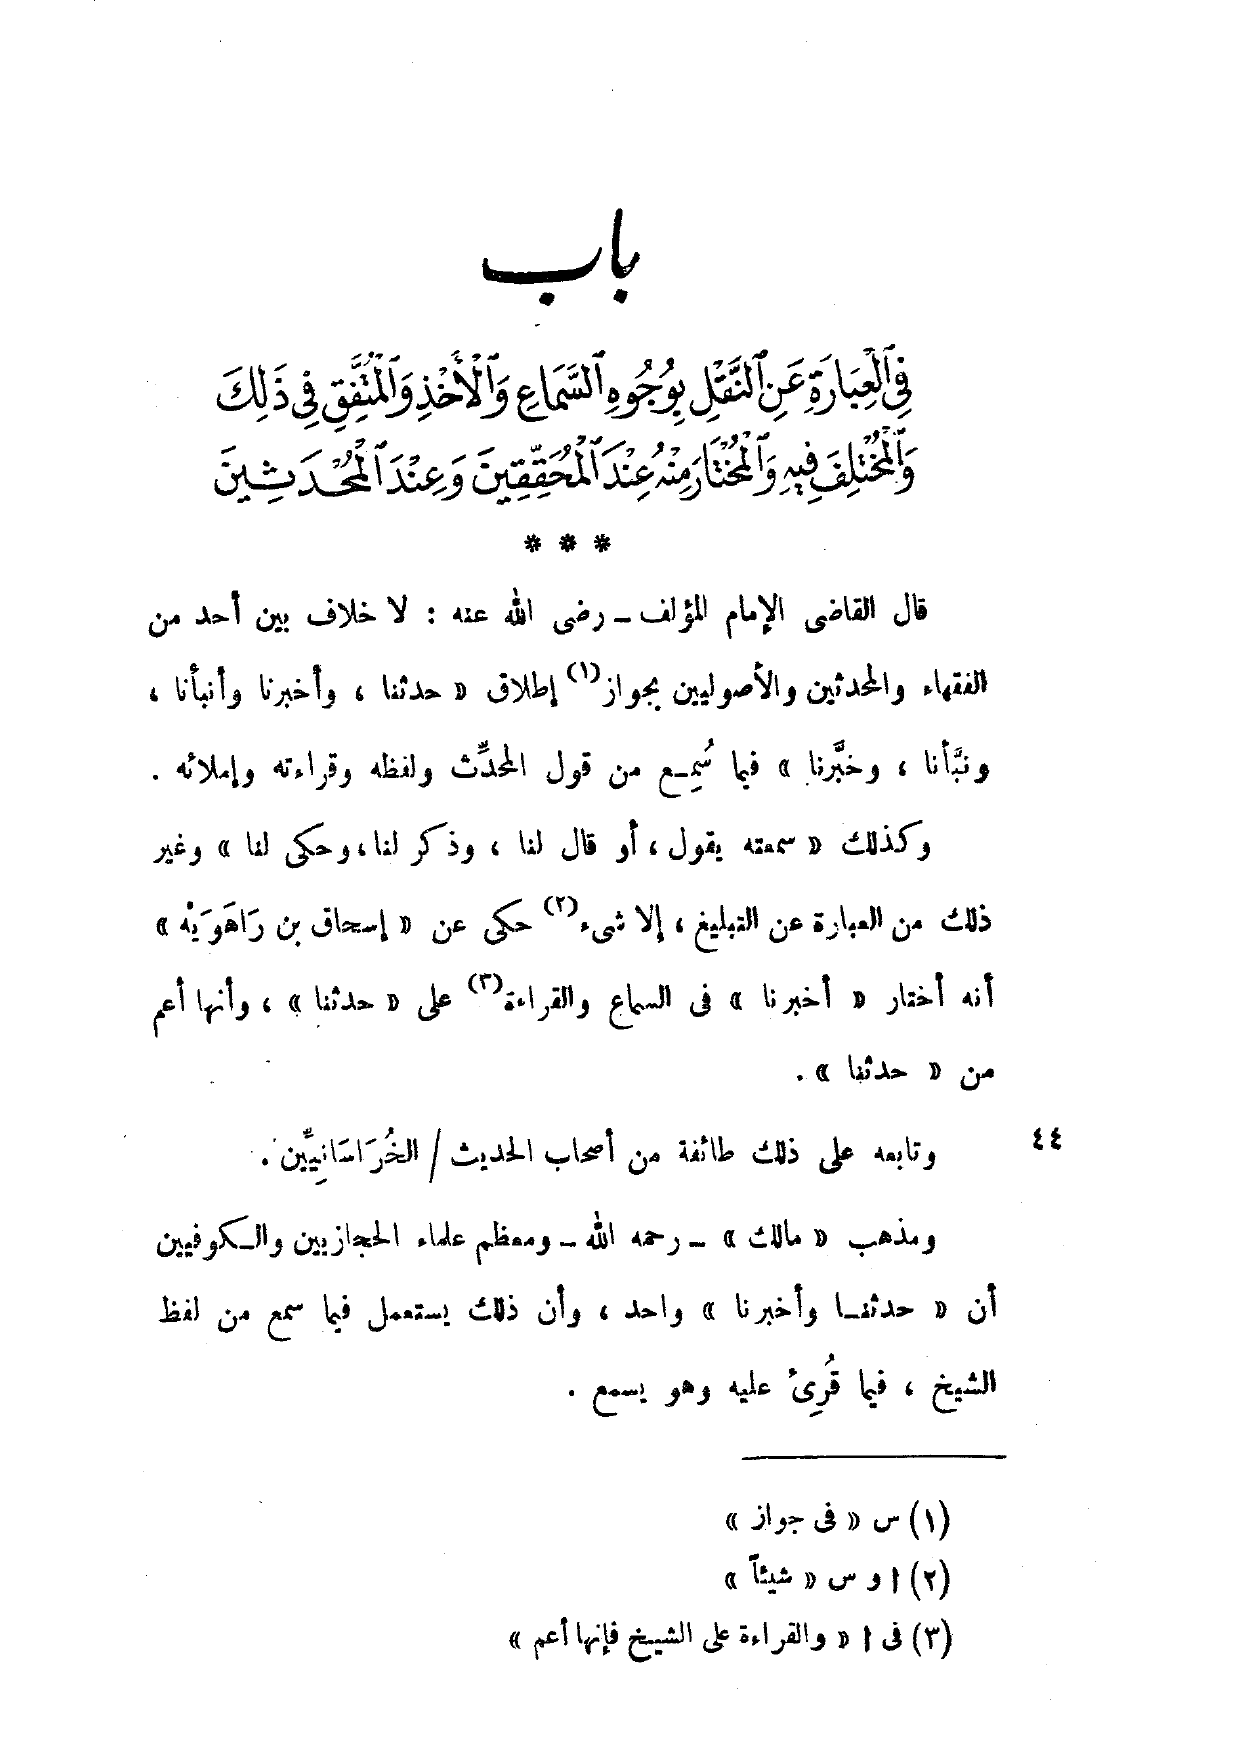 باب
فِي ٱلْعِبَارَةِ عَنِ ٱلنَّقْلِ بِوُجُوهِ ٱلسَّمَاعِ وَٱلْأَخْذِ وَٱلْمُتَّفِقِ فِي ذَلِكَ
وَٱلْمُخْتَلِفِ فِيهِ وَٱلْمُخْتَارِ مِنْهُ عِنْدَ ٱلْمُحَقِّقِينَ وَعِنْدَ ٱلْمُحْدَثِينَ
* * *
قال القاضى الإمام المؤلف ــ رضى الله عنه : لا خلاف بين أحد من
الفقهاء والمحدثين والأصوليين بجواز(١) إطلاق « حدثنا ، وأخبرنا وأنبأنا ،
ونبَّأنا ، وخبَّرنا » فيما سُمِـع من قول المحدِّث ولفظه وقراءته وإملائه .
وكذلك « سمعته يقول ، أو قال لنا ، وذكر لنا ، وحكى لنا » وغير
ذلك من العبارة عن التبليغ ، إلا شىء(٢) حكى عن « إسحاق بن رَاهَوَيْه »
أنه أختار « أخبرنا » فى السماع والقراءة(٣) على « حدثنا » ، وأنها أعم
من « حدثنا » .
وتابعه على ذلك طائفة من أصحاب الحديث / الخُرَاسَانِيِّين .
٤٤
ومذهب « مالك » ــ رحمه الله ــ ومعظم علماء الحجازيين والـكوفيين
أن « حدثنـا وأخبرنا » واحد ، وأن ذلك يستعمل فيما سمع من لفظ
الشيخ ، فيما قُرِئ عليه وهو يسمع .
(١) س « فى جواز »
(٢) ا و س « شيئاً »
(٣) فى ا « والقراءة على الشيخ فإنها أعم »